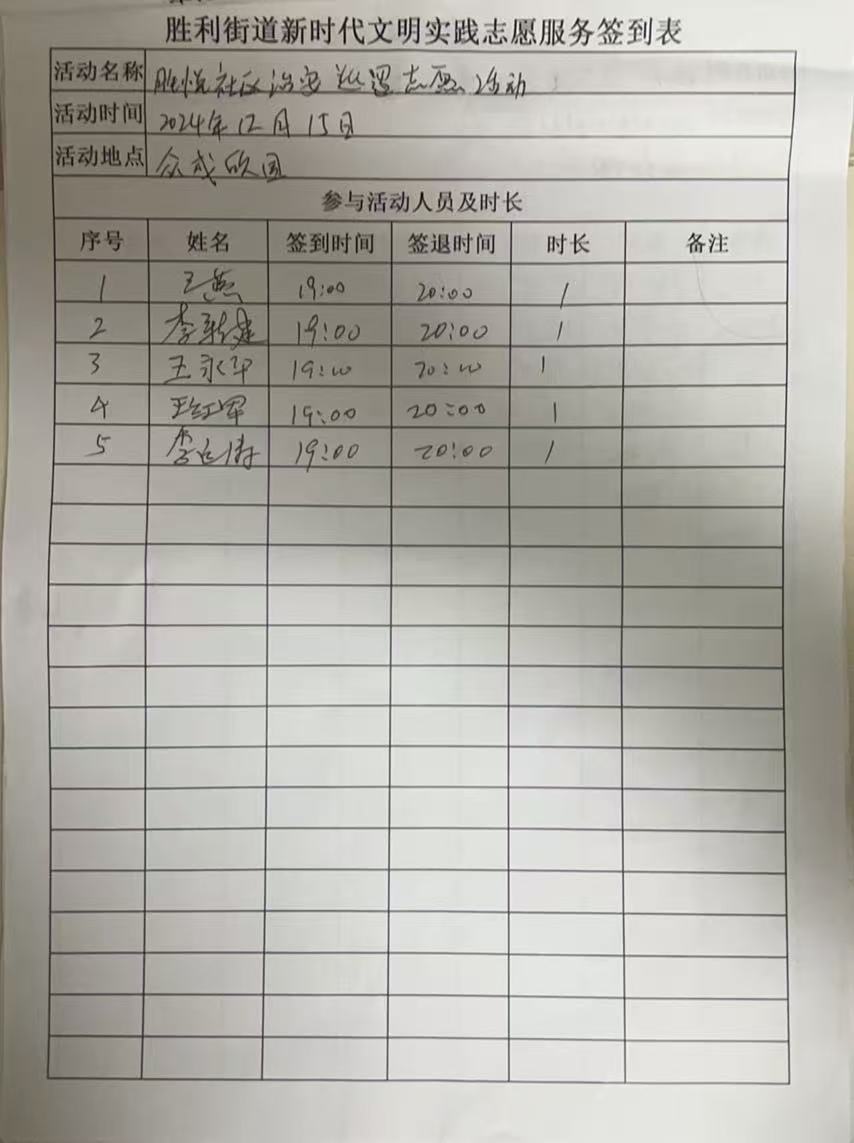 胜利街道新时代文明实践志愿服务签到表
活动名称 胜悦社区治安巡逻志愿活动
活动时间 2024年12月15日
活动地点 众成欣园
参与活动人员及时长
序号 姓名 签到时间 签退时间 时长 备注
1 王燕 19:00 20:00 1
2 李新建 19:00 20:00 1
3 王永军 19:00 20:00 1
4 王红军 19:00 20:00 1
5 李 19:00 20:00 1